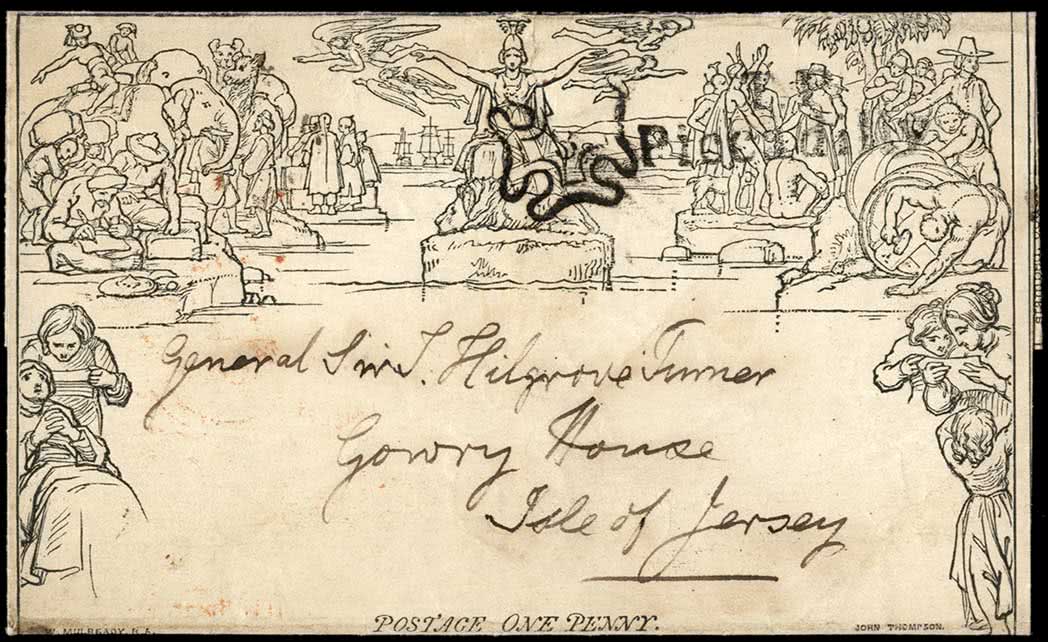 General Sir T. Hilgrove Turner
Gowry House
Isle of Jersey
POSTAGE ONE PENNY.
W. MULREADY. R. A.
JOHN THOMPSON.